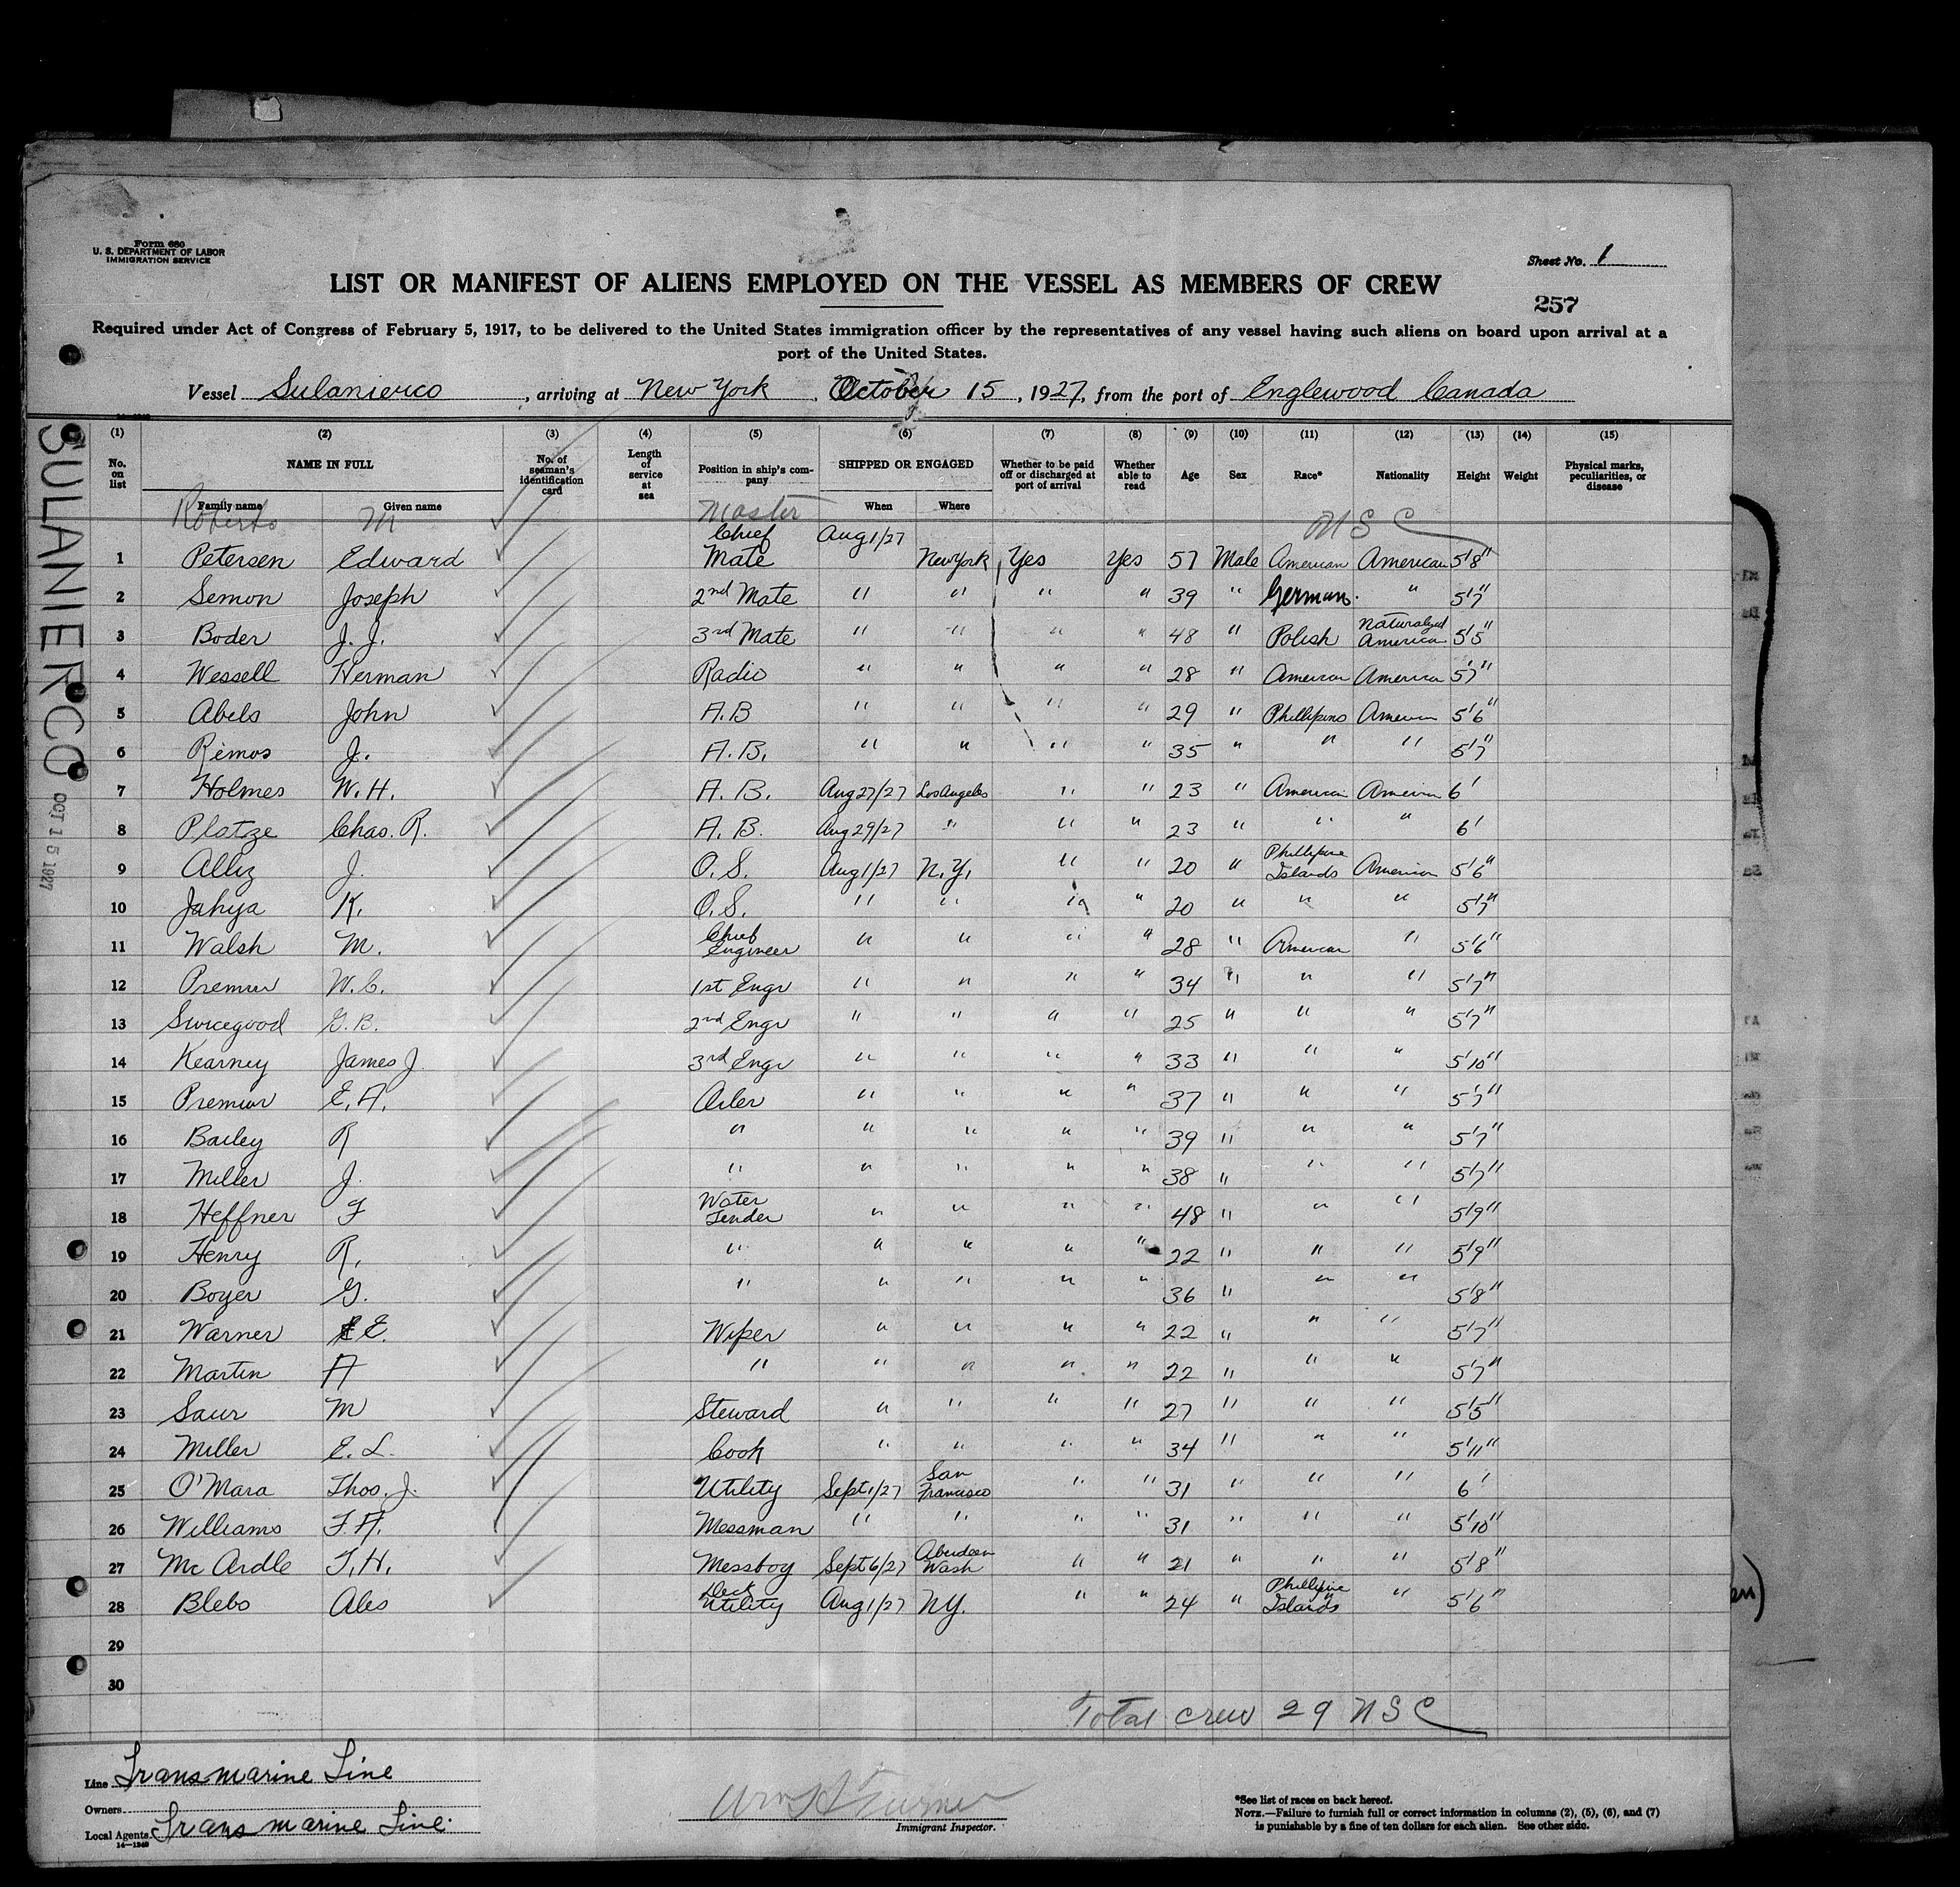 Form 680
U. S. DEPARTMENT OF LABOR
IMMIGRATION SERVICE
Sheet No. 1
LIST OR MANIFEST OF ALIENS EMPLOYED ON THE VESSEL AS MEMBERS OF CREW
257
Required under Act of Congress of February 5, 1917, to be delivered to the United States immigration officer by the representatives of any vessel having such aliens on board upon arrival at a
port of the United States.
Vessel Sulanierco, arriving at New York, October 15, 1927, from the port of Englewood Canada
SULANIERCO OCT 15 1927
(1) (2) (3) (4) (5) (6) (7) (8) (9) (10) (11) (12) (13) (14) (15)
No. on list NAME IN FULL Family name Given name No. of seaman's identification card Length of service at sea Position in ship's company SHIPPED OR ENGAGED When Where Whether to be paid off or discharged at port of arrival Whether able to read Age Sex Race* Nationality Height Weight Physical marks, peculiarities, or disease
Roberts M Master
1 Petersen Edward Chief Mate Aug 1/27 New York Yes Yes 57 Male American American 5'8"
2 Semon Joseph 2nd Mate " " " " 39 " German " 5'7"
3 Boder J. J. 3rd Mate " " " " 48 " Polish Naturalized American 5'5"
4 Wessell Herman Radio " " " " 28 " American American 5'7"
5 Abels John A.B " " " " 29 " Phillipino American 5'6"
6 Remos J. A.B. " " " " 35 " " " 5'7"
7 Holmes W. H. A.B. Aug 27/27 Los Angeles " " 23 " American American 6'
8 Plotze Chas. R. A.B. Aug 29/27 " " " 23 " " " 6'
9 Alliz J. O.S. Aug 1/27 N.Y. " " 20 " Phillipine Islands American 5'6"
10 Jahya K. O.S. " " " " 20 " " " 5'7"
11 Walsh M. Chief Engineer " " " " 28 " American " 5'6"
12 W.C. 1st Engr " " " " 34 " " " 5'7"
13 Swicegood G. B. 2nd Engr " " " " 25 " " " 5'7"
14 Kearney James J. 3rd Engr " " " " 33 " " " 5'10"
15 E. A. Oiler " " " " 37 " " " 5'7"
16 Bailey R " " " " " 39 " " " 5'7"
17 Miller J. " " " " " 38 " " " 5'7"
18 Heffner F Water Tender " " " " 48 " " " 5'9"
19 Henry R. " " " " " 22 " " " 5'9"
20 Boyer G. " " " " " 36 " " " 5'8"
21 Warner E. Wiper " " " " 22 " " " 5'7"
22 Martin A " " " " " 22 " " " 5'7"
23 Saur M Steward " " " " 27 " " " 5'5"
24 Miller E. L. Cook " " " " 34 " " " 5'11"
25 O'Mara Thos. J. Utility Sept 1/27 San Francisco " " 31 " " " 6'
26 Williams F. A. Messman " " " " 31 " " " 5'10"
27 Mc Ardle T. H. Messboy Sept 6/27 Aberdeen Wash " " 21 " " " 5'8"
28 Blebo Ales Deck Utility Aug 1/27 N.Y. " " 24 " Phillipine Islands " 5'6"
29
30
Total crew 29 NSC
Line Transmarine Line
Owners
Local Agents Transmarine Line.
14—1240
Immigrant Inspector.
*See list of races on back hereof.
NOTE.—Failure to furnish full or correct information in columns (2), (5), (6), and (7)
is punishable by a fine of ten dollars for each alien. See other side.